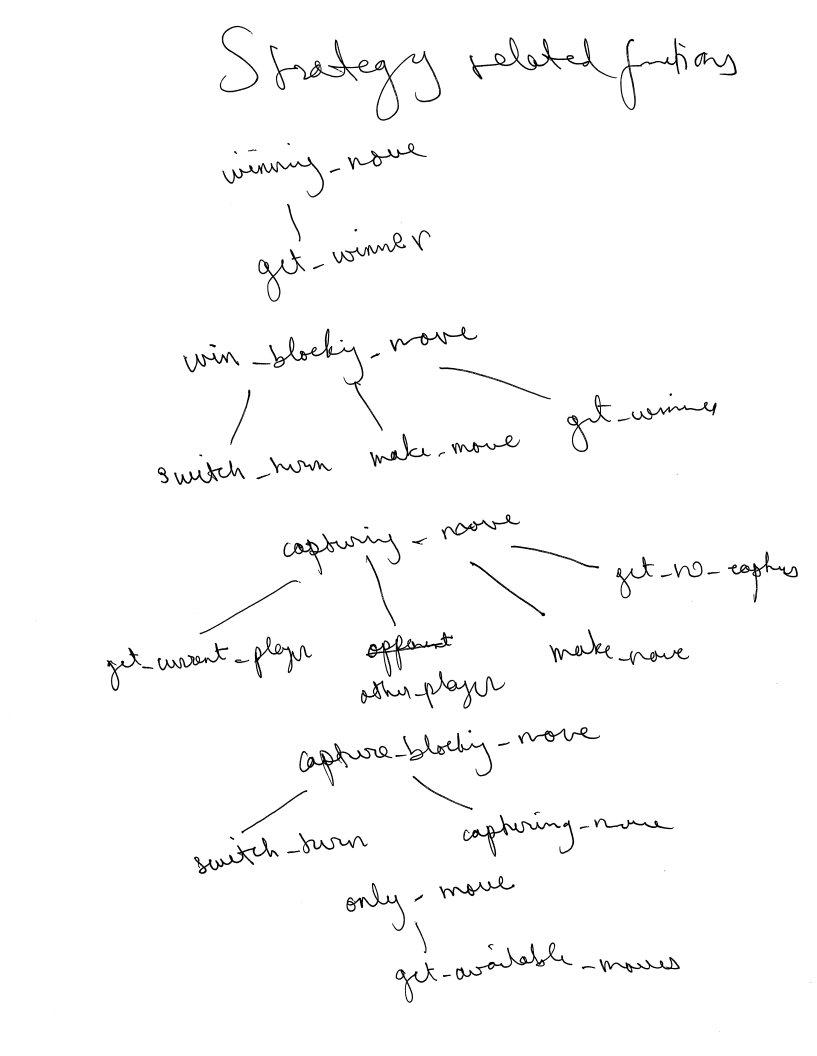 Strategy related functions
winning_move
get_winner
win_blocking_move
get_winner
switch_turn make_move
capturing_move
get_no_captures
get_current_player opponent make_move
other_player
capture_blocking_move
switch_turn capturing_move
only_move
get_available_moves